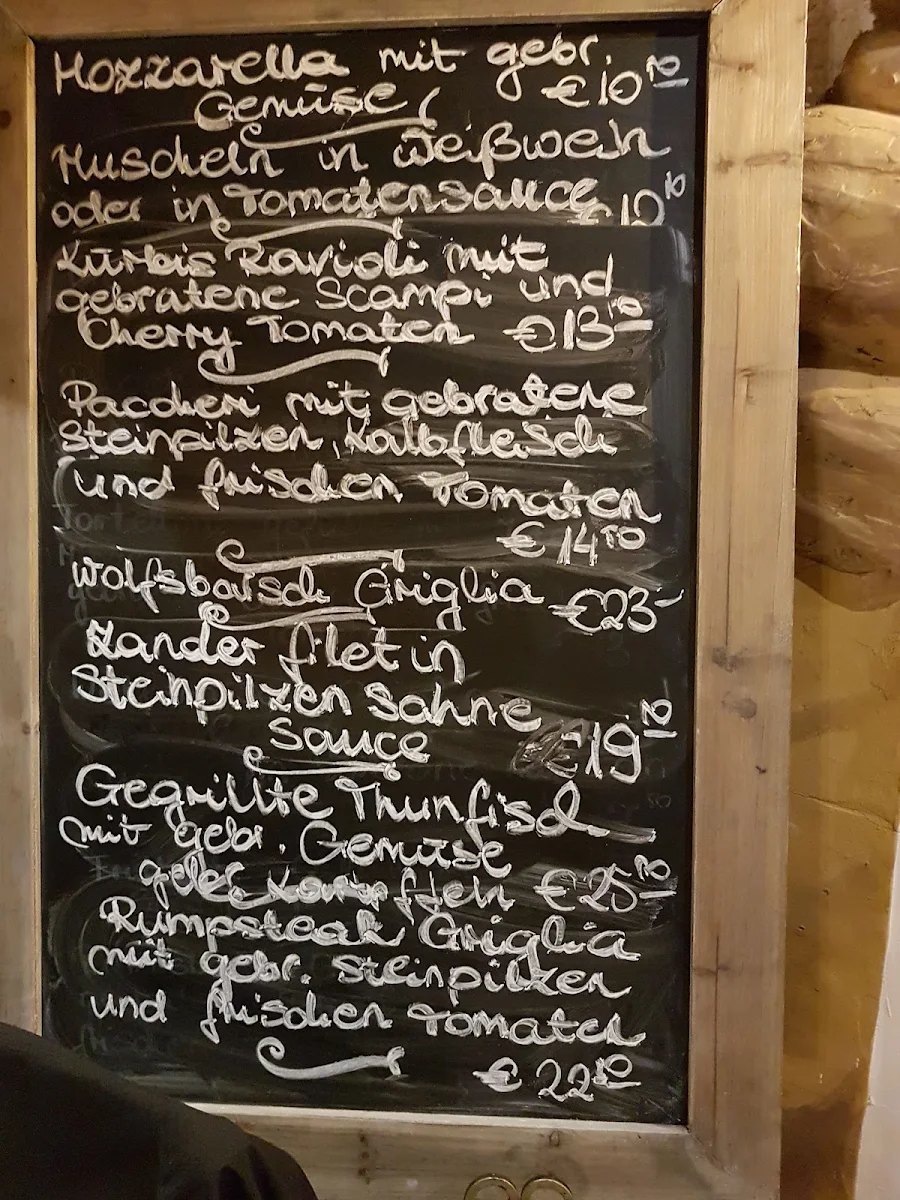 Mozzarella mit gebr.
Gemüse €10 50
Muscheln in Weißwein
oder in Tomatensauce € 10 50
Kürbis Ravioli mit
gebratene Scampi und
Cherry Tomaten €13 50
Paccheri mit gebratene
Steinpilzen, Kalbfleisch
und frischen Tomaten
€ 14 50
Wolfsbarsch Griglia €23-
Zander filet in
Steinpilzen Sahne
Sauce €19 50
Gegrillte Thunfisch
mit gebr. Gemüse
€25 50
Rumpsteak Griglia
mit gebr. Steinpilzen
und frischen Tomaten
€ 22 50